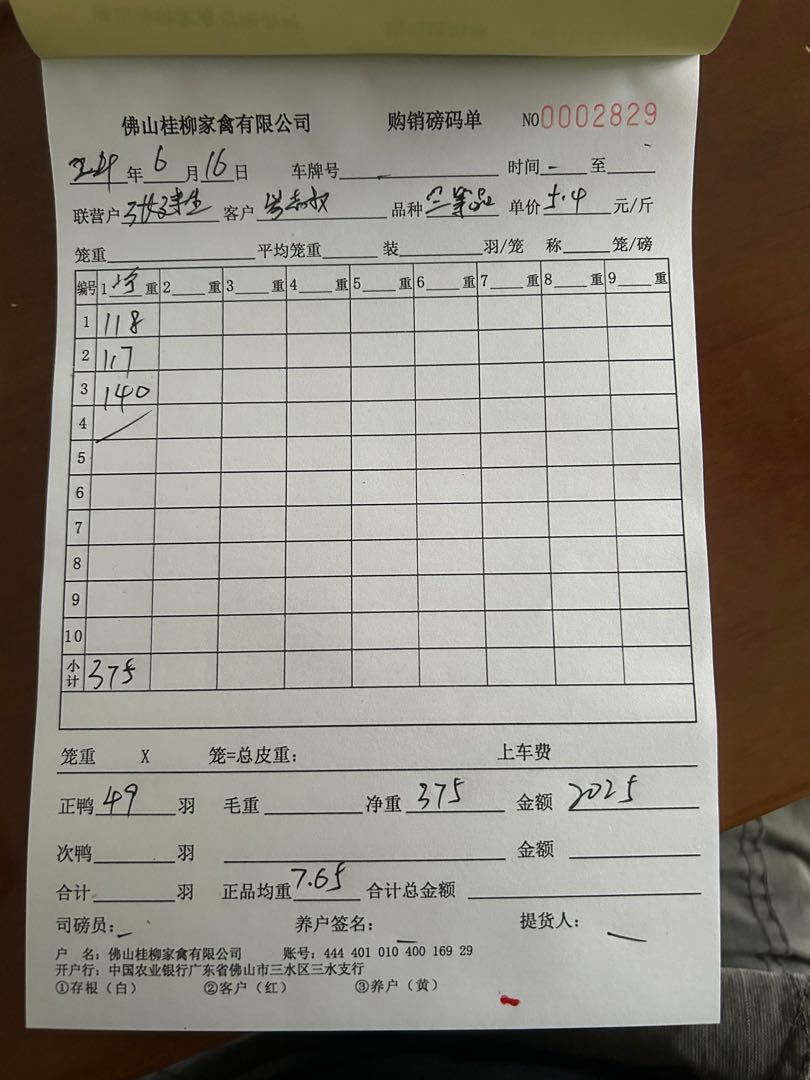 佛山桂柳家禽有限公司 购销磅码单 NO0002829
年 6 月 16 日 车牌号 时间 至
联营户 客户 品种 三等品 单价 5.4 元/斤
笼重 平均笼重 装 羽/笼 称 笼/磅
编号 1 净 重 2 重 3 重 4 重 5 重 6 重 7 重 8 重 9 重
1 118
2 117
3 140
4
5
6
7
8
9
10
小计 375
笼重 X 笼=总皮重: 上车费
正鸭 49 羽 毛重 净重 375 金额 2025
次鸭 羽 金额
合计 羽 正品均重 7.65 合计总金额
司磅员: 养户签名: 提货人:
户 名: 佛山桂柳家禽有限公司 账号: 444 401 010 400 169 29
开户行: 中国农业银行广东省佛山市三水区三水支行
①存根(白) ②客户(红) ③养户(黄)